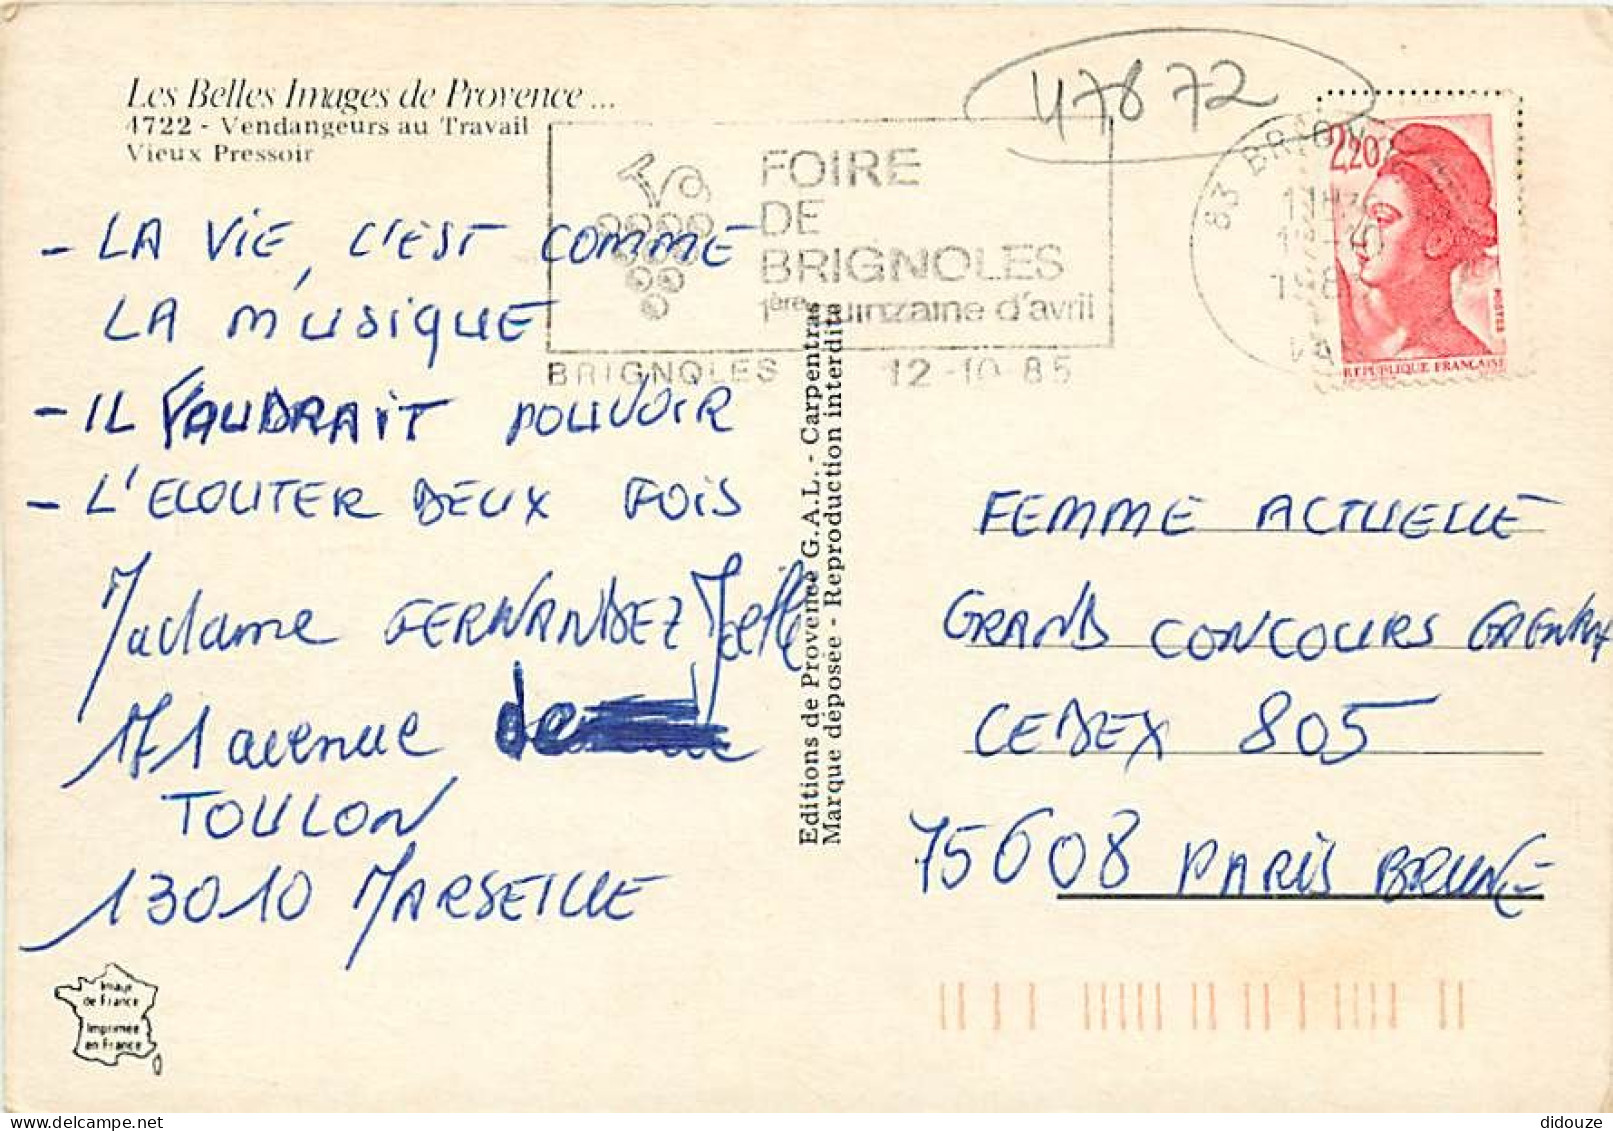 Les Belles Images de Provence ...
4722 - Vendangeurs au Travail
Vieux Pressoir
47872
FOIRE
DE
BRIGNOLES
1ère quinzaine d'avril
BRIGNOLES 12-10-85
83 BRIG
2,20
POSTES
REPUBLIQUE FRANÇAISE
- LA VIE, C'EST COMME
LA MUSIQUE
- IL FAUDRAIT POUVOIR
- L'ECOUTER DEUX FOIS
Madame FERNANDEZ Joëlle
171 avenue de
TOULON
13010 MARSEILLE
Editions de Provence G.A.L. - Carpentras
Marque déposée - Reproduction interdite
FEMME ACTUELLE
GRAND CONCOURS
CEDEX 805
75608 PARIS BRUNE
Image
de France
Imprimée
en France
didouze